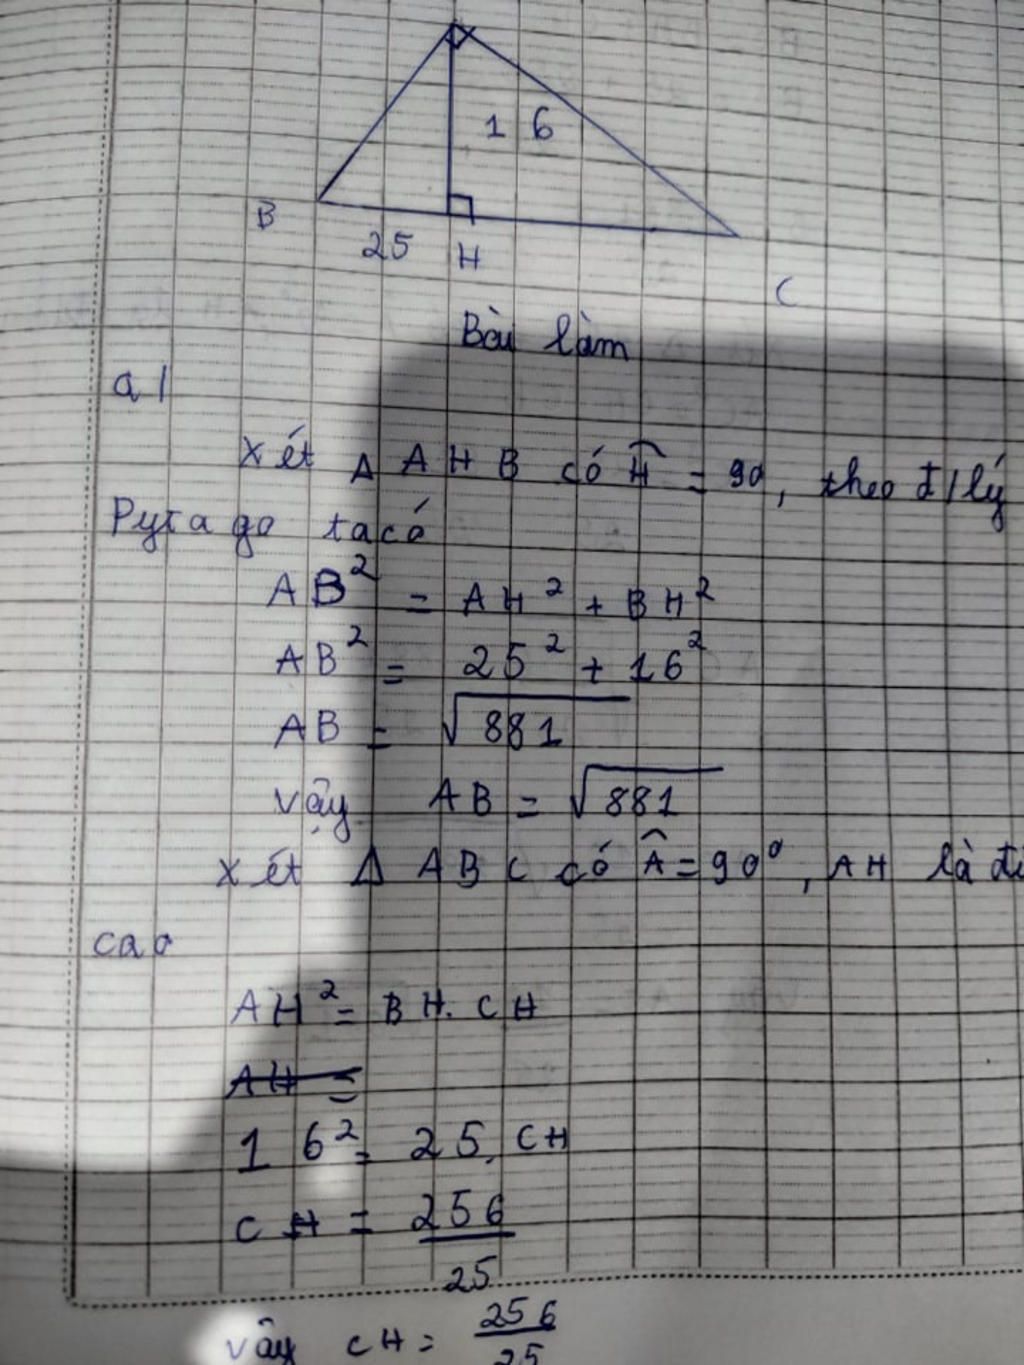 1 6
B
25 H
C
Bài làm
a/
Xét Δ AHB có Ĥ = 90, theo đ/lý
Pytago ta có
AB² = AH² + BH²
AB² = 25² + 16²
AB = √881
Vậy AB = √881
Xét Δ ABC có Â = 90°, AH là đư
cao
AH² = BH. CH
AH =
16² = 25. CH
CH = 256/25
Vậy CH = 256/25